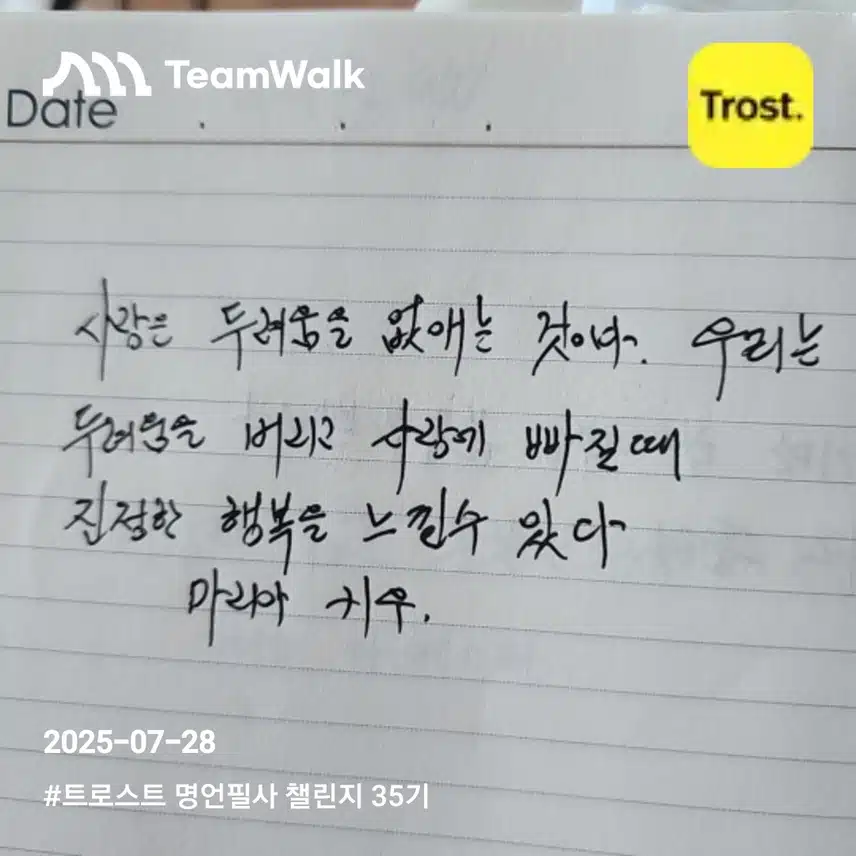 TeamWalk
Trost.
Date . . .
사랑은 두려움을 없애는 것이다. 우리는
두려움을 버리고 사랑에 빠질때
진정한 행복을 느낄수 있다
마리아 키우.
2025-07-28
#트로스트 명언필사 챌린지 35기